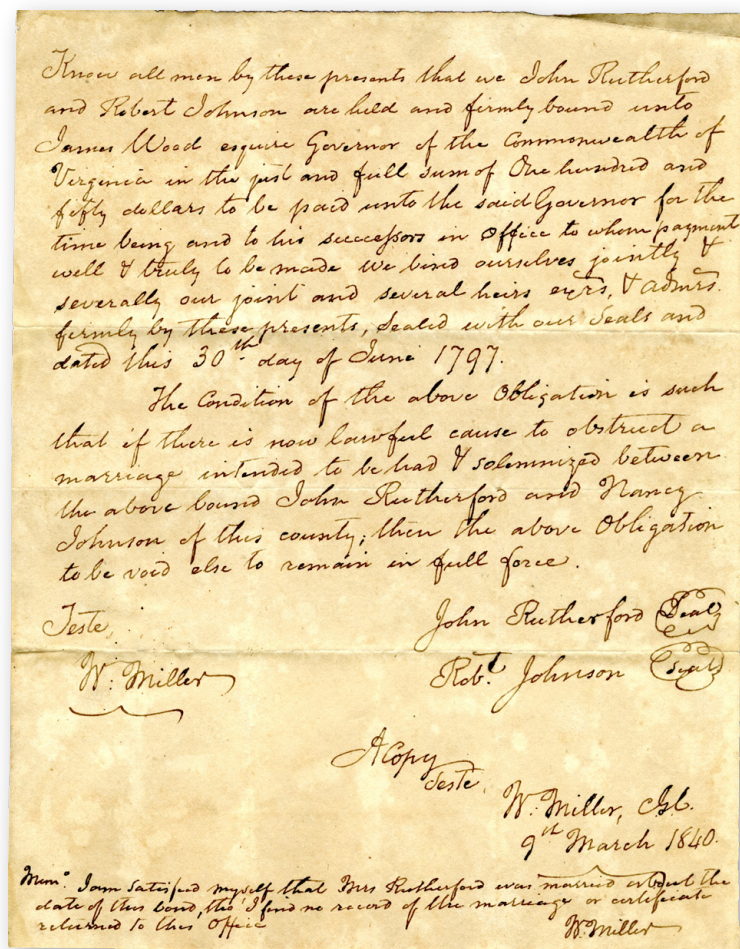 Know all men by these presents that we John Rutherford
and Robert Johnson are held and firmly bound unto
James Wood esquire Governor of the Commonwealth of
Virginia in the just and full sum of One hundred and
fifty dollars to be paid unto the said Governor for the
time being and to his successors in Office to whom payment
well & truly to be made we bind ourselves jointly &
severally our joint and several heirs exrs, & admrs.
firmly by these presents, Sealed with our Seals and
dated this 30th day of June 1797.
The Condition of the above Obligation is such
that if there is now lawful cause to obstruct a
marriage intended to be had & solemnized between
the above bound John Rutherford and Nancy
Johnson of this county; then the above Obligation
to be void else to remain in full force.
Teste,
John Rutherford Seal
W. Miller
Robt. Johnson Seal
A Copy
Teste,
W. Miller, Ck.
9th March 1840.
Memo. I am satisfied myself that Mrs Rutherford was married about the
date of this bond, tho' I find no record of the marriage or certificate
returned to this Office
W. Miller